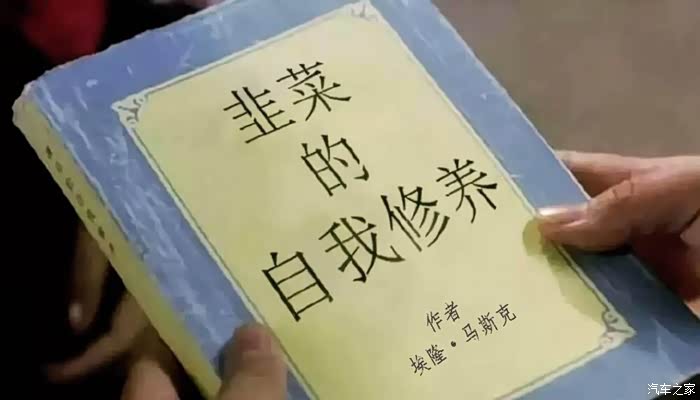 韭菜
的
自我修养
作者
埃隆·马斯克
汽车之家